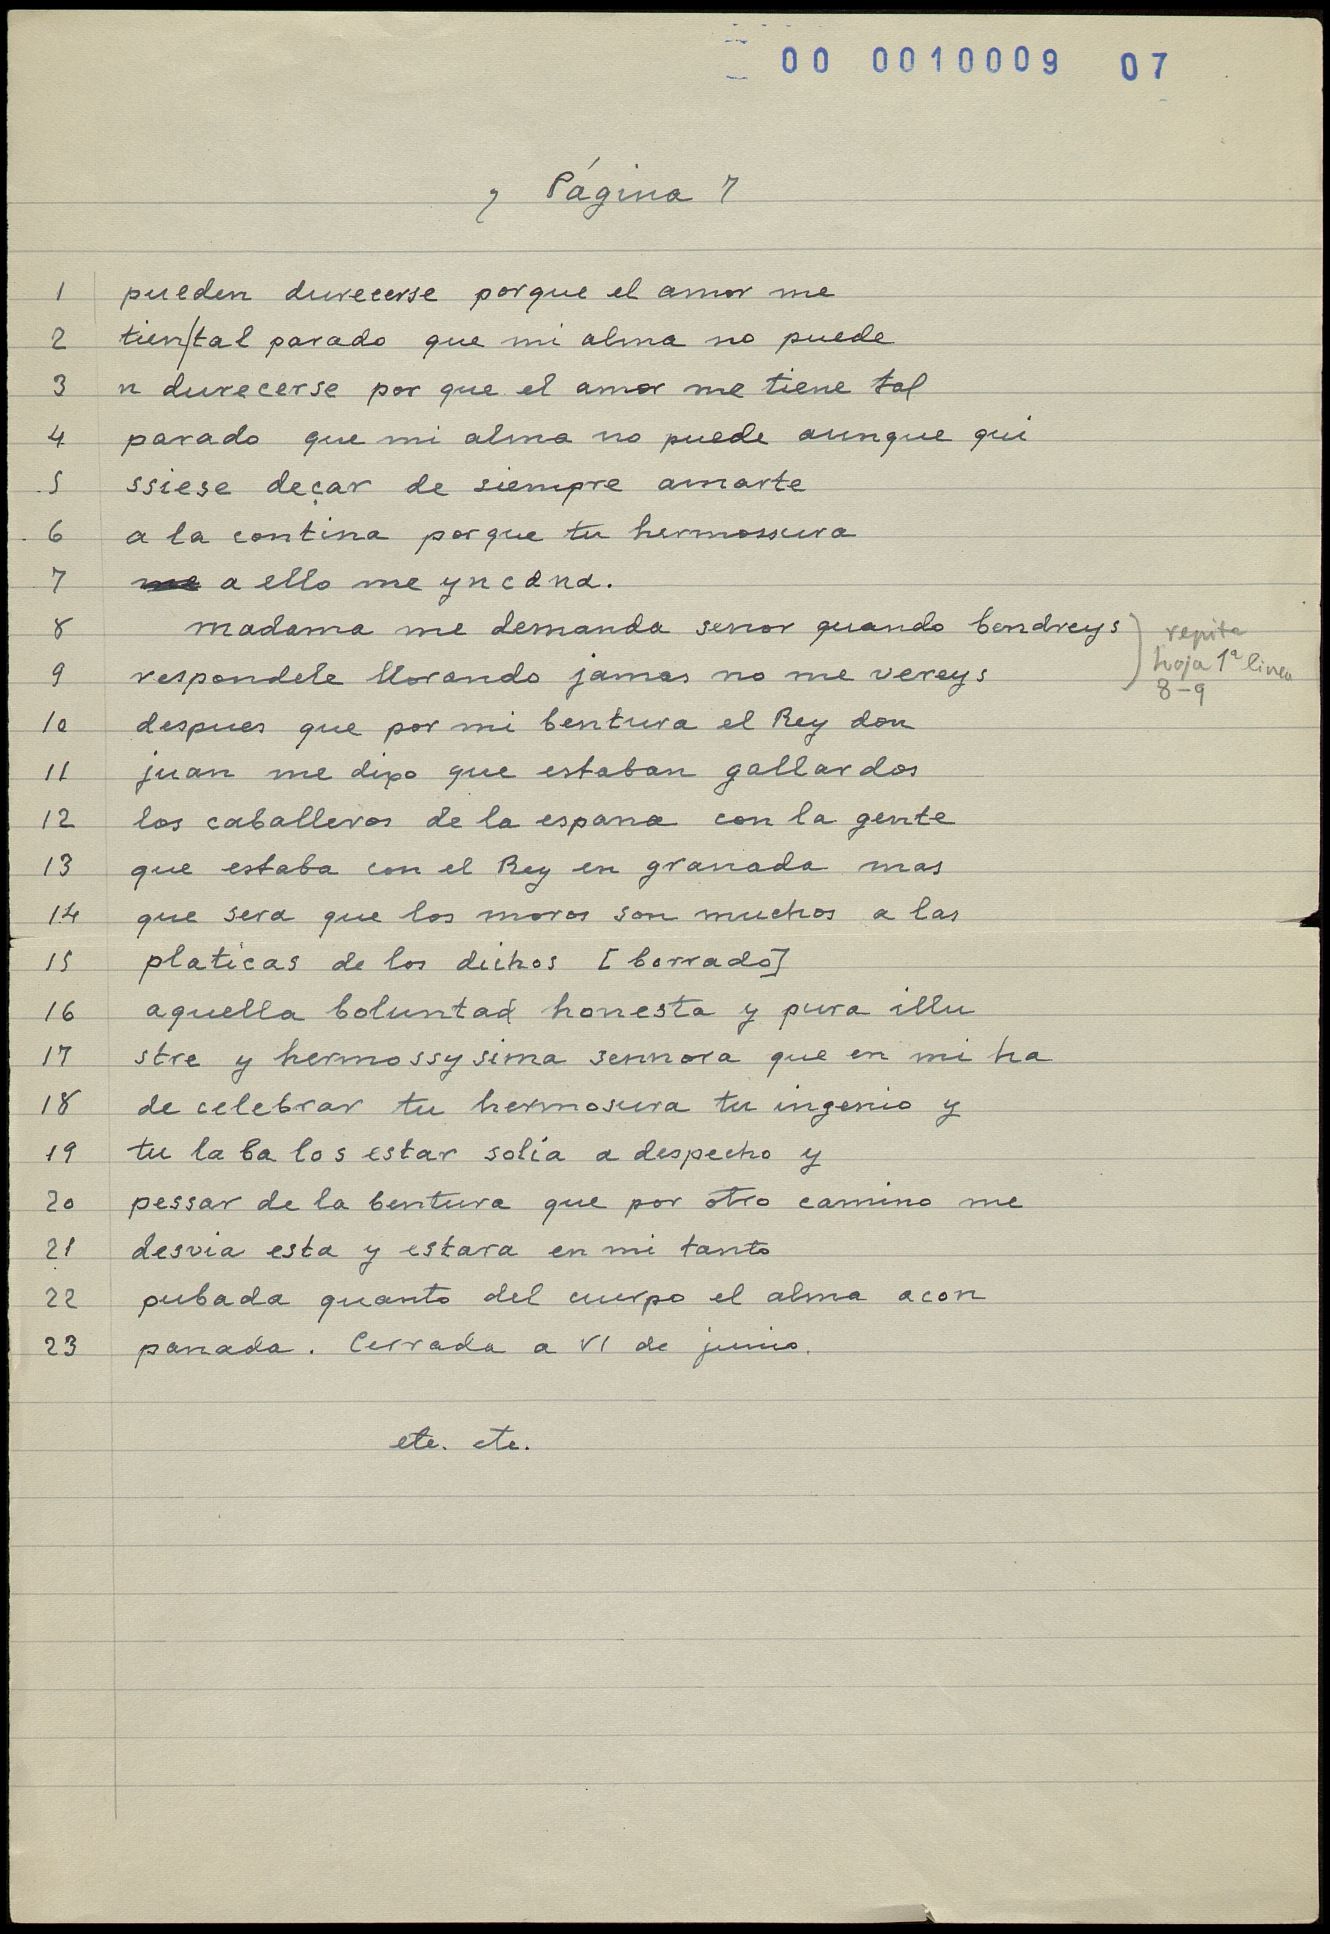 00 0010009 07
7 Página 7
1 pueden durecerse porque el amor me
2 tien/tal parado que mi alma no puede
3 n durecerse por que el amor me tiene tal
4 parado que mi alma no puede aunque qui
5 ssiese deçar de siempre amarte
6 a la contina porque tu hermossura
7 a ello me yncana.
8 madama me demanda senor quando bendreys
9 respondele llorando jamas no me vereys
repite
hoja 1ª linea
8-9
10 despues que por mi bentura el Rey don
11 juan me dixo que estaban gallardos
12 los caballeros de la espana con la gente
13 que estaba con el Rey en granada mas
14 que sera que los moros son muchos a las
15 platicas de los dichos [borrado]
16 aquella boluntad honesta y pura illu
17 stre y hermossysima sennora que en mi ha
18 de celebrar tu hermosura tu ingenio y
19 tu la ba los estar solia a despecho y
20 pessar de la bentura que por otro camino me
21 desvia esta y estara en mi tanto
22 pubada quanto del cuerpo el alma acon
23 panada. Cerrada a VI de junio.
etc. etc.